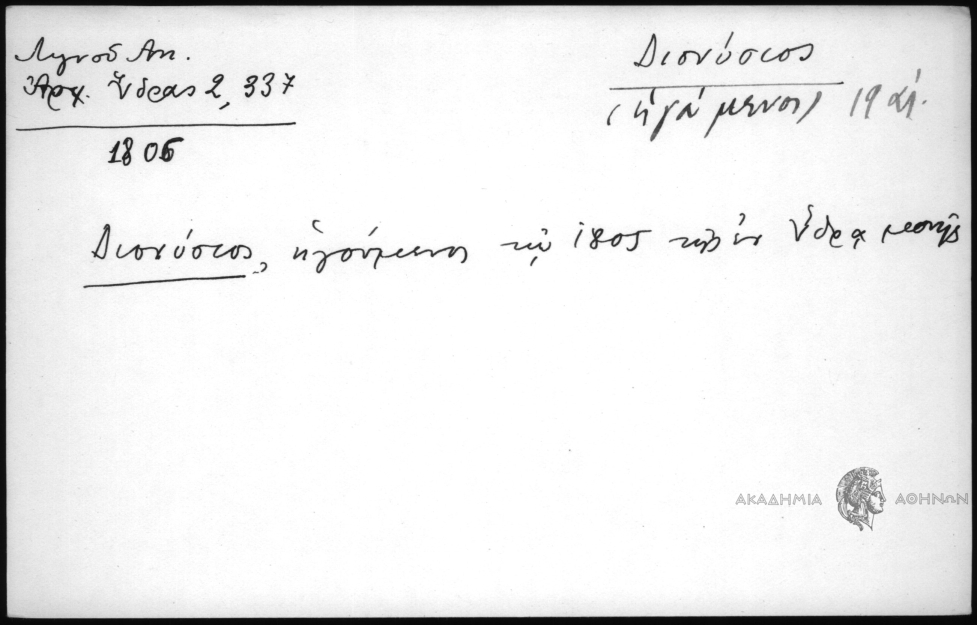 Λιγνοῦ Αν.
Ἀρχ. Ὕδρας 2, 337
1806
Διονύσιος
(ἡγούμενος) 19 αἰ.
Διονύσιος, ἡγούμενος τῷ 1805 τῆς ἐν Ὕδρᾳ μονῆς
ΑΚΑΔΗΜΙΑ ΑΘΗΝΩΝ